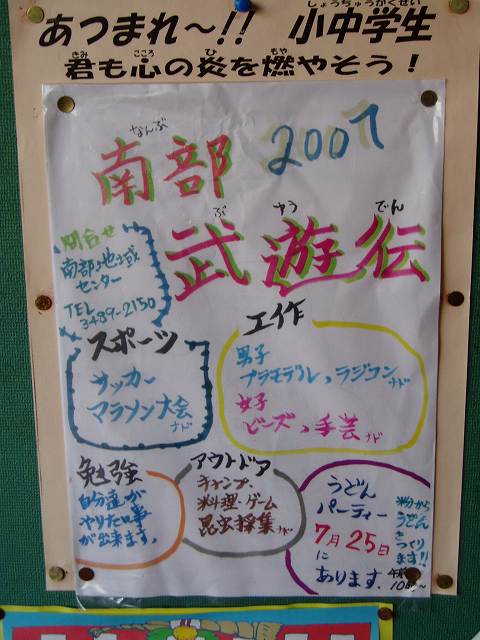 あつまれ～!! 小中学生
しょうちゅうがくせい
君も心の炎を燃やそう！
きみ こころ ひ もや
なんぶ
南部 2007
ぶ ゆう でん
武遊伝
問合せ
南部地域
センター
TEL
3489-2150
スポーツ
サッカー
マラソン大会
ナド
工作
男子
プラモデル、ラジコン ナド
女子
ビーズ、手芸 ナド
勉強
自分達が
やりたい事
が出来ます。
アウトドア
キャンプ・
料理・ゲーム
昆虫採集 ナド
うどん
パーティー
7月25日
に
あります。
粉から
うどん
をつくり
ます!!